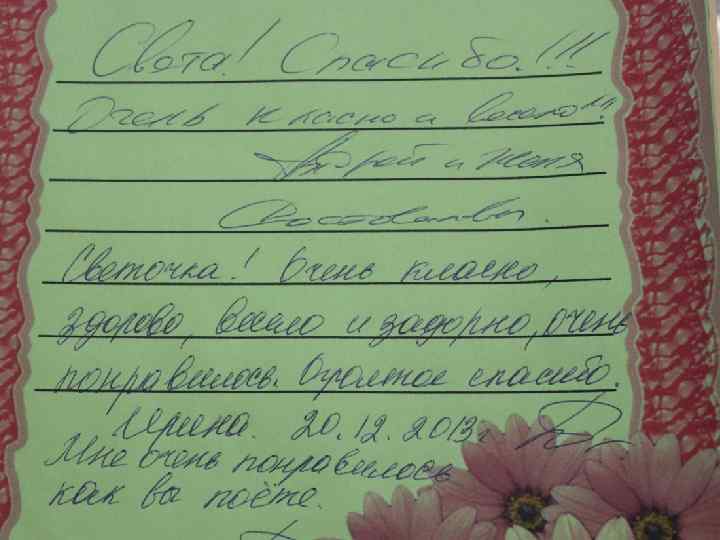 Света! Спасибо!!!
Очень класно и весело!!!
Андрей и Женя
Светочка! Очень класно,
здорово, весело и задорно, очень
понравилось. Огромное спасибо.
Ирина. 20.12.2013г
Мне очень понравилось
как вы поёте.